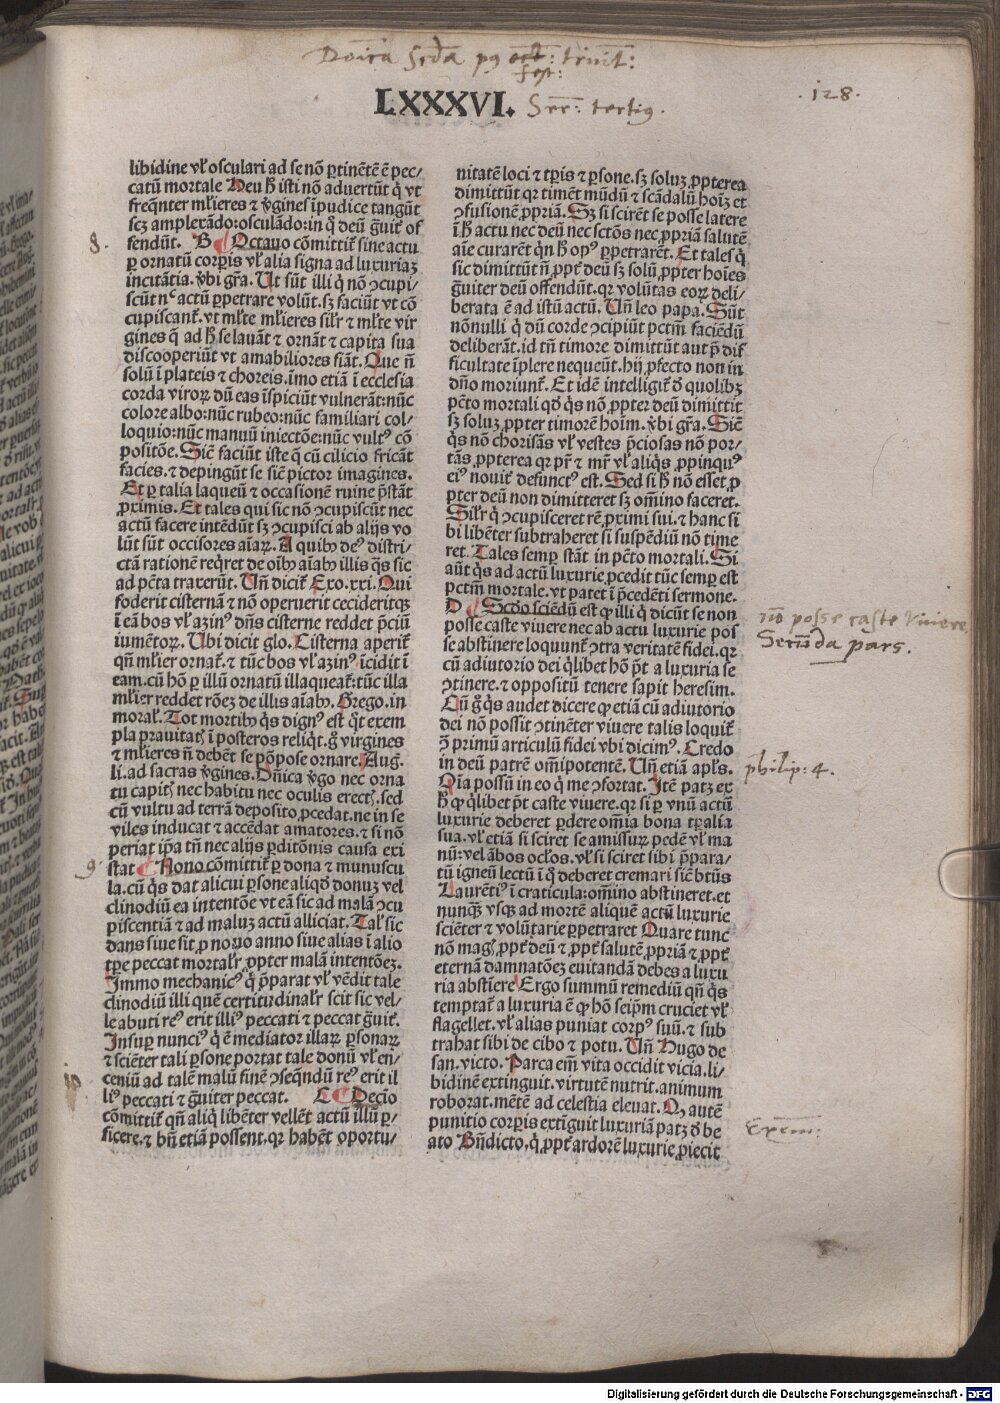 Dōīca scďa pꝰ oct: trinit:
fest:
LXXXVI. Ser: tertiꝰ.
.128.
libidine vł osculari ad se nō ꝑtinētē ē pec/
catū mortale Heu ħ isti nō aduertūt q̇ vt
freq̄nter mƚieres ⁊ v̇gines īpudice tangūt
scꝫ amplexādo:osculādo:in q̇ deū g̈uit̛ of
fendūt. B Octauo cōmittit̛ sine actu
8.
ꝑ ornatū corꝑis vł alia signa ad luxuriaꝫ
incitātia. v̇bi gr̄a. Ut sūt illi q̇ nō ꝯcupi/
scūt nᶜ actū ꝑpetrare volūt. sꝫ faciūt vt cō
cupiscant̛. vt mƚte mƚieres siƚr ⁊ mƚte vir
gines q̄ ad ħ se lauāt ⁊ ornāt ⁊ capita sua
discooperiūt vt amabiliores fiāt. Que n̄
solū ī plateis ⁊ choreis. īmo etiā ī ecclesia
corda viroꝝ dū eas īspiciūt vulnerāt:nūc
colore albo:nūc rubeo:nūc familiari col/
loquio:nūc manuū iniectōe:nūc vultꝰ cō
positōe. Sic̄ faciūt iste q̄ cū cilicio fricāt
facies. ⁊ depingūt se sic̄ pictor imagines.
Et ꝑ talia laqueū ⁊ occasionē ruine p̄stāt
ꝓximis. Et tales qui sic nō ꝯcupiscūt nec
actū facere intēdūt sꝫ ꝯcupisci ab alijs vo
lūt sūt occisores aīaꝝ. A quibꝰ deꝰ distri/
ctā rationē req̇ret de oībꝰ aīabꝰ illis q̄s sic
ad pc̄ta traxerūt. Un̄ dicit̛ Exo. xxi. Qui
foderit cisternā ⁊ nō operuerit cecideritqꝫ
ī eā bos vł azinꝰ dn̄s cisterne reddet p̄ciū
iumētoꝝ. Ubi dicit glo. Cisterna aperit̛
qn̄ mƚier ornat̛. ⁊ tūc bos vł azinꝰ īcidit ī
eam. cū hō ꝑ illū ornatū illaqueat̛:tūc illa
mƚier reddet rōeꝫ de illis aīabꝰ. Grego. in
moral̛. Tot mortibꝰ q̇s dignꝰ est q̇t exem
pla prauitatꝭ ī posteros reliq̇t. g̊ virgines
⁊ mƚieres n̄ debēt se p̄pose ornare. Aug.
li. ad sacras v̇gines. Dn̄ica v̇go nec orna
tu capitꝭ nec habitu nec oculis erectꝭ. sed
cū vultu ad terrā deposito ꝓcedat. ne in se
viles inducat ⁊ accēdat amatores. ⁊ si nō
periat ip̄a tn̄ nec alijs ꝑditōnis causa exi
stat Nono cōmittit̛ ꝑ dona ⁊ munuscu
9.
la. cū q̇s dat alicui ꝑsone aliqd̓ donuꝫ vel
clinodiū ea intentōe vt eā sic ad malā ꝯcu
piscentiā ⁊ ad maluꝫ actū alliciat. Tal̛ sic
dans siue sit ꝓ nouo anno siue alias ī alio
tp̄e peccat mortalr̛ ꝓpter malā intentōeꝫ.
Immo mechanicꝰ q̇ p̄parat vł vēdit tale
clinodiū illi quē certitudinalr̛ scit sic vel/
le abuti reꝰ erit illiꝰ peccati ⁊ peccat g̈uit̛.
Insuꝑ nunciꝰ q̇ ē mediator illaꝝ ꝑsonaꝝ
⁊ sciēter tali ꝑsone portat tale donū vł en/
ceniū ad talē malū finē ꝯseq̄ndū reꝰ erit il
liꝰ peccati ⁊ g̈uiter peccat. C Decīo
10
cōmittit̛ qn̄ aliq̇ libēter vellēt actū illū ꝑ/
ficere. ⁊ bn̄ etiā possent. qꝛ habēt oportu/
nitatē loci ⁊ tꝑis ⁊ ꝑsone. sꝫ soluꝫ ꝓpterea
dimittūt qꝛ timēt mūdū ⁊ scādalū hoīꝫ et
ꝯfusionē ꝓpriā. Sꝫ si scirēt se posse latere
ī ħ actu nec deū nec sctōs nec ꝓpriā salutē
aīe curarēt q̇n ħ opꝰ ꝑpetrarēt. Et tales q̇
sic dimittūt n̄ ꝓpt̛ deū sꝫ solū ꝓpter hoīes
g̈uiter deū offendūt. qꝛ volūtas eoꝝ deli/
berata ē ad istū actū. Un̄ leo papa. Sūt
nōnulli q̇ dū corde ꝯcipiūt pctm̄ faciēdū
deliberāt. id tn̄ timore dimittūt aut p̄ dif
ficultate īplere nequeūt. hij ꝓfecto non in
dn̄o moriunt̛. Et idē intelligit̛ d̓ quolibꝫ
pc̄to mortali qd̓ q̇s nō ꝓpter deū dimittit
sꝫ soluꝫ ꝓpter timorē hoīm. v̇bi gr̄a. Sic̄
q̇s nō chorisās vł vestes p̄ciosas nō por/
tās ꝓpterea qꝛ pr̄ ⁊ mr̄ vł aliq̇s ꝓpinquꝰ
eiꝰ nouit̛ defunctꝰ est. Sed si ħ nō esset ꝓ
pter deū non dimitteret sꝫ om̄ino faceret.
Silr̛ q̇ ꝯcupisceret rē ꝓximi sui. ⁊ hanc si
bi libēter subtraheret si suspēdiū nō time
ret. Tales semꝑ stāt in pc̄to mortali. Si
aūt q̇s ad actū luxurie ꝓcedit tūc semꝑ est
pctm̄ mortale. vt patet ī p̄cedēti sermone.
D Scd̓o sciēdū est ꝙ illi q̇ dicūt se non
nō posse caste viuere
posse caste viuere nec ab actu luxurie pos
Secūda pars.
se abstinere loquunt̛ ꝯtra veritatē fidei. qꝛ
cū adiutorio dei q̇libet hō p̄t a luxuria se
ꝯtinere. ⁊ oppositū tenere sapit heresim.
Cū g̊ q̇s audet dicere ꝙ etiā cū adiutorio
dei nō possit ꝯtinēter viuere talis loquit̛
ꝯ̄ primū articulū fidei vbi dicimꝰ. Credo
in deū patrē om̄ipotentē. Un̄ etiā apƚs.
philip: 4.
Oīa possū in eo q̇ me ꝯfortat. Itē patꝫ ex
ħ ꝙ q̇libet p̄t caste viuere. qꝛ si ꝑ vnū actū
luxurie deberet ꝑdere om̄ia bona tꝑalia
sua. vł etiā si sciret se amissuꝝ pedē vł ma
nū: vel ābos oclōs. vł si sciret sibi p̄para/
tū igneū lectū ī q̇ deberet cremari sic̄ btūs
Laurētiꝰ ī craticula: om̄ino abstineret. et
nunqꝫ vsqꝫ ad mortē aliquē actū luxurie
sciēter ⁊ volūtarie ꝑpetraret Quare tunc
nō magꝭ ꝓpt̛ deū ⁊ ꝓpt̛ salutē ꝓpriā ⁊ ꝓpt̛
eternā damnatōeꝫ euitandā debes a luxu
ria abstiēre Ergo summū remediū qn̄ q̇s
temptat̛ a luxuria ē ꝙ hō seip̄m cruciet vł
flagellet. vł alias puniat corpꝰ suū. ⁊ sub
trahat sibi de cibo ⁊ potu. Un̄ Hugo de
san. victo. Parca em̄ vita occidit vicia. li/
bidinē extinguit. virtutē nutrit. animum
roborat. mētē ad celestia eleuat. Q, autē
punitio corꝑis extīguit luxuriā patꝫ d̓ be
Exem:
ato Bn̄dicto. q̇ ꝓpt̛ ardorē luxurie ꝓiecit
Digitalisierung gefördert durch die Deutsche Forschungsgemeinschaft - DFG